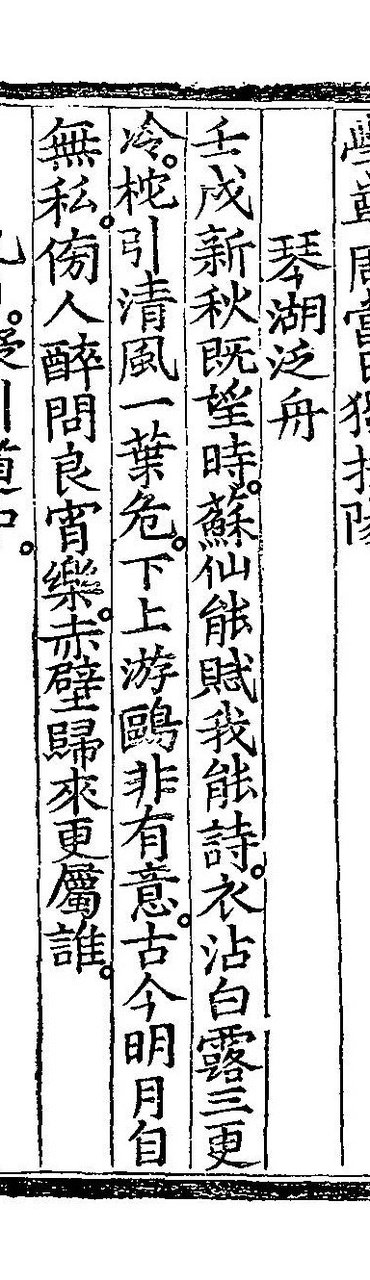 琴湖泛舟
壬戌新秋既望時。蘇仙能賦我能詩。衣沾白露三更
冷。枕引清風一葉危。下上游鷗非有意。古今明月自
無私。傍人醉問良宵樂。赤壁歸來更屬誰。